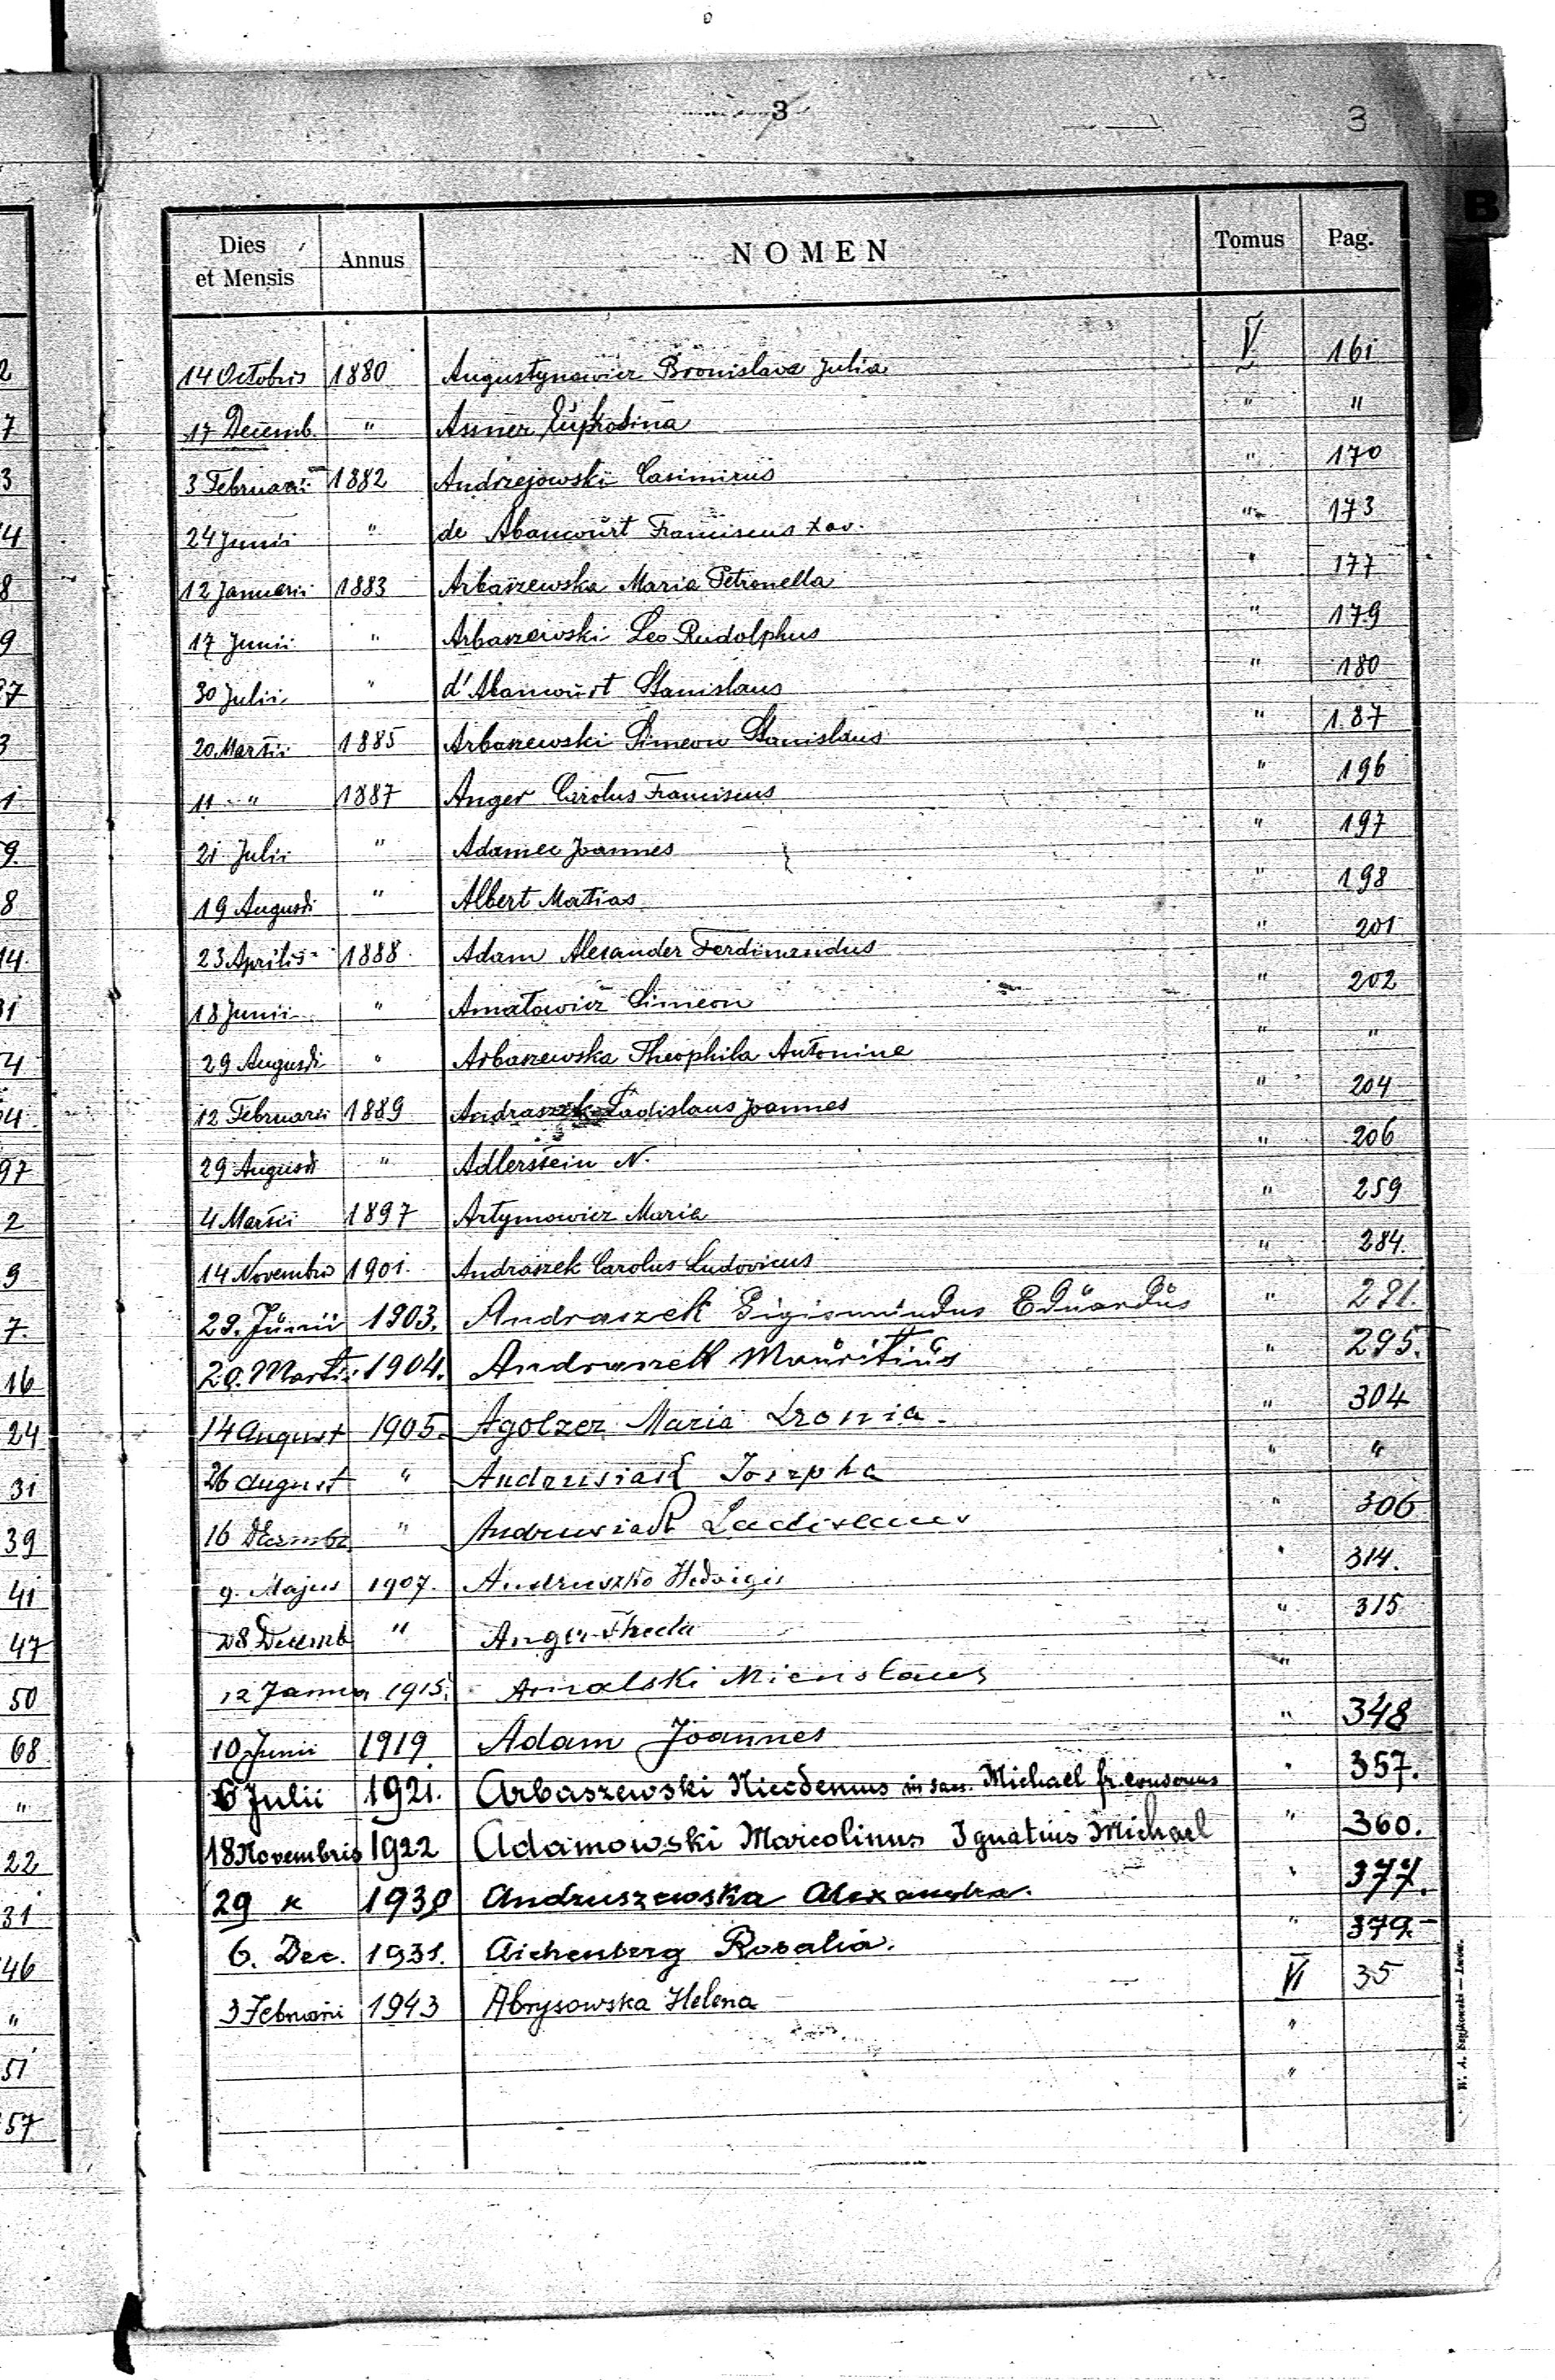 3
3
Dies et Mensis Annus NOMEN Tomus Pag.
14 Octobris 1880 Augustynowicz Bronislava Julia V 161
17 Decemb. " Assner Euphrosina " "
3 Februarii 1882 Andrzejowski Casimirus " 170
24 Junii " de Abancourt Franciscus Xav. " 173
12 Januarii 1883 Arbaszewska Maria Petronella " 177
17 Junii " Arbaszewski Leo Rudolphus " 179
30 Julii " d'Abancourt Stanislaus " 180
20 Martii 1885 Arbaszewski Simeon Stanislaus " 187
11 " 1887 Anger Carolus Franciscus " 196
21 Julii " Adamec Joannes " 197
19 Augusti " Albert Matias " 198
23 Aprilis 1888 Adam Alexander Ferdinandus " 201
18 Junii " Amatowicz Simeon " 202
29 Augusti " Arbaszewska Theophila Antonina " "
12 Februarii 1889 Andraszek Ladislaus Joannes " 204
29 Augusti " Adlerstein N. " 206
4 Martii 1897 Artymowicz Maria " 259
14 Novembris 1901. Andraszek Carolus Ludovicus " 284.
29. Junii 1903. Andraszek Sigismundus Eduardus " 291.
20. Martii 1904. Andraszek Mauritius " 295.
14 August 1905. Agolzer Maria " 304
26 august " Andrusiak Josepha " "
16 Decembr " Andrusiak Ladislaus " 306
9. Majus 1907. Andruszko Hedvigis " 314.
28 Decemb " Anger Thecla " 315
12 Januar 1915. Amalski "
10 Junii 1919 Adam Joannes " 348
6 Julii 1921. Arbaszewski Nicodemus in sacr. Michael fr. conversus " 357.
18 Novembris 1922 Adamowski Marcolinus Ignatius Michael " 360.
29 1930 Andruszewska Alexandra. " 377.
6. Dec. 1931. Aichenberg Rosalia. " 379.-
3 Februarii 1943 Abrysowska Helena VI 35
"
"
W. A. Szyjkowski — Lwów.
B
2
7
3
4
8
9
37
3
1
9.
8
14.
31
4
4
97
2
9
7.
16
24
31
39
41
47
50
68
"
22
31
46
"
51
57